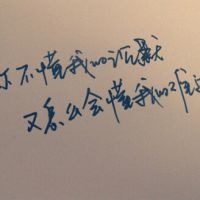 你不懂我的沉默
又怎么会懂我的难